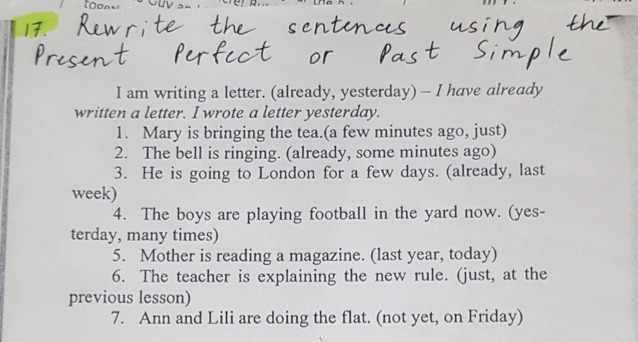 17. Rewrite the sentences using the
Present Perfect or Past Simple
I am writing a letter. (already, yesterday) – I have already
written a letter. I wrote a letter yesterday.
1. Mary is bringing the tea.(a few minutes ago, just)
2. The bell is ringing. (already, some minutes ago)
3. He is going to London for a few days. (already, last
week)
4. The boys are playing football in the yard now. (yes-
terday, many times)
5. Mother is reading a magazine. (last year, today)
6. The teacher is explaining the new rule. (just, at the
previous lesson)
7. Ann and Lili are doing the flat. (not yet, on Friday)